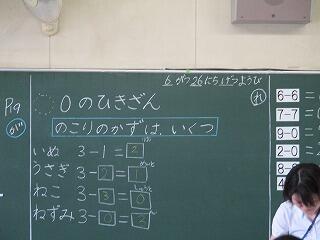 6がつ26にちげつようび
P19
0のひきざん
のこりのかずは、いくつ
いぬ 3-1=2
うさぎ 3-2=1
ねこ 3-3=0
ねずみ 3-0=3
れ
6-6
7-7
9-0
2-0